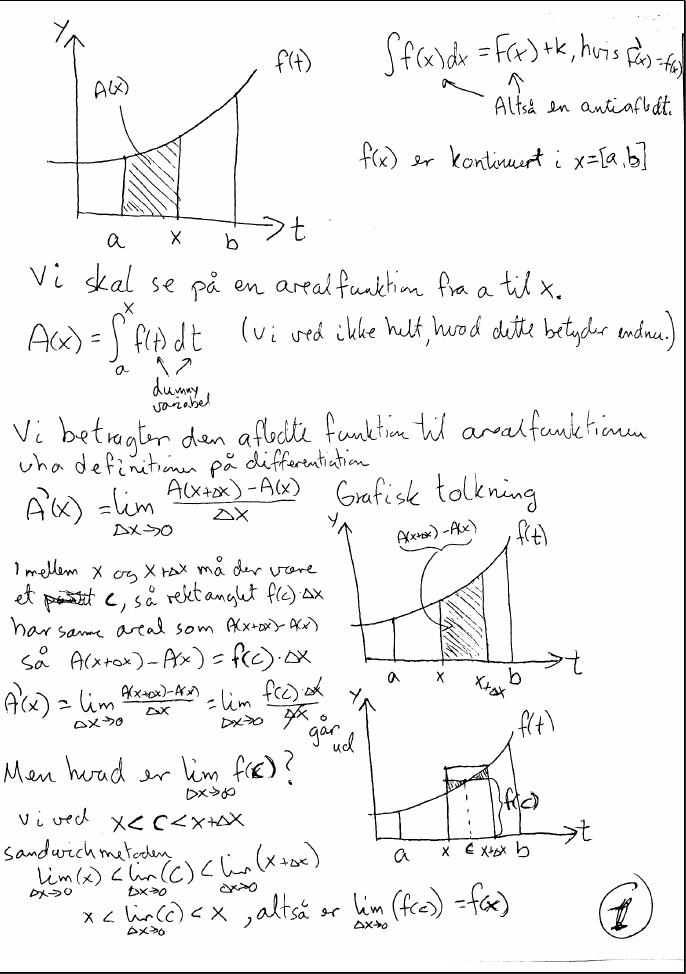 y
f(t)
A(x)
a x b t
∫f(x)dx = F(x)+k, hvis F'(x)=f(x)
Altså en antiafledt.
f(x) er kontinuert i x=[a,b]
Vi skal se på en arealfunktion fra a til x.
A(x) = ∫ₐˣ f(t) dt (vi ved ikke helt, hvad dette betyder endnu.)
dummy
variabel
Vi betragter den afledte funktion til arealfunktionen
vha definitionen på differentiation
A'(x) = lim Δx→0 (A(x+Δx)-A(x))/Δx
Grafisk tolkning
y
A(x+Δx)-A(x)
f(t)
a x x+Δx b t
Imellem x og x+Δx må der være
et c, så rektanglet f(c)·Δx
har samme areal som A(x+Δx)-A(x)
så A(x+Δx)-A(x) = f(c)·Δx
A'(x) = lim Δx→0 (A(x+Δx)-A(x))/Δx = lim Δx→0 (f(c)·Δx)/Δx
går
ud
y
f(t)
f(c)
a x c x+Δx b t
Men hvad er lim Δx→∞ f(c)?
vi ved x<c<x+Δx
sandwichmetoden
lim Δx→0 (x) < lim Δx→0 (c) < lim Δx→0 (x+Δx)
x < lim Δx→0 (c) < x, altså er lim Δx→0 (f(c)) = f(x)
1